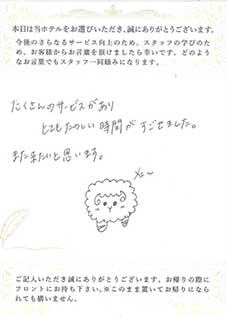 本日は当ホテルをお選びいただき、誠にありがとうございます。
今後のさらなるサービス向上のため、スタッフの学びのため、お客様からお言葉を頂けましたら幸いです。どのようなお言葉でもスタッフ一同励みになります。
たくさんのサービスがあり
とてもたのしい時間がすごせました。
また来たいと思います。
メェ〜
ご記入いただき誠にありがとうございます。お帰りの際に
フロントにお持ち下さい。※このまま置いてお帰りになら
れても構いません。